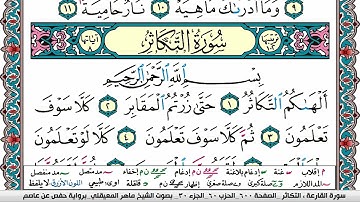 وَمَآ أَدْرَىٰكَ مَا هِيَهْ ١٠ نَارٌ حَامِيَةٌۢ ١١
سُورَةُ التَّكَاثُرِ
بِسْمِ ٱللَّهِ ٱلرَّحْمَٰنِ ٱلرَّحِيمِ
أَلْهَىٰكُمُ ٱلتَّكَاثُرُ ١ حَتَّىٰ زُرْتُمُ ٱلْمَقَابِرَ ٢ كَلَّا سَوْفَ
تَعْلَمُونَ ٣ ثُمَّ كَلَّا سَوْفَ تَعْلَمُونَ ٤ كَلَّا لَوْ تَعْلَمُونَ
سورة القارعة ، التكاثر الصفحة ٦٠٠ الحزب ٦٠ الجزء ٣٠ بصوت الشيخ ماهر المعيقلي برواية حفص عن عاصم